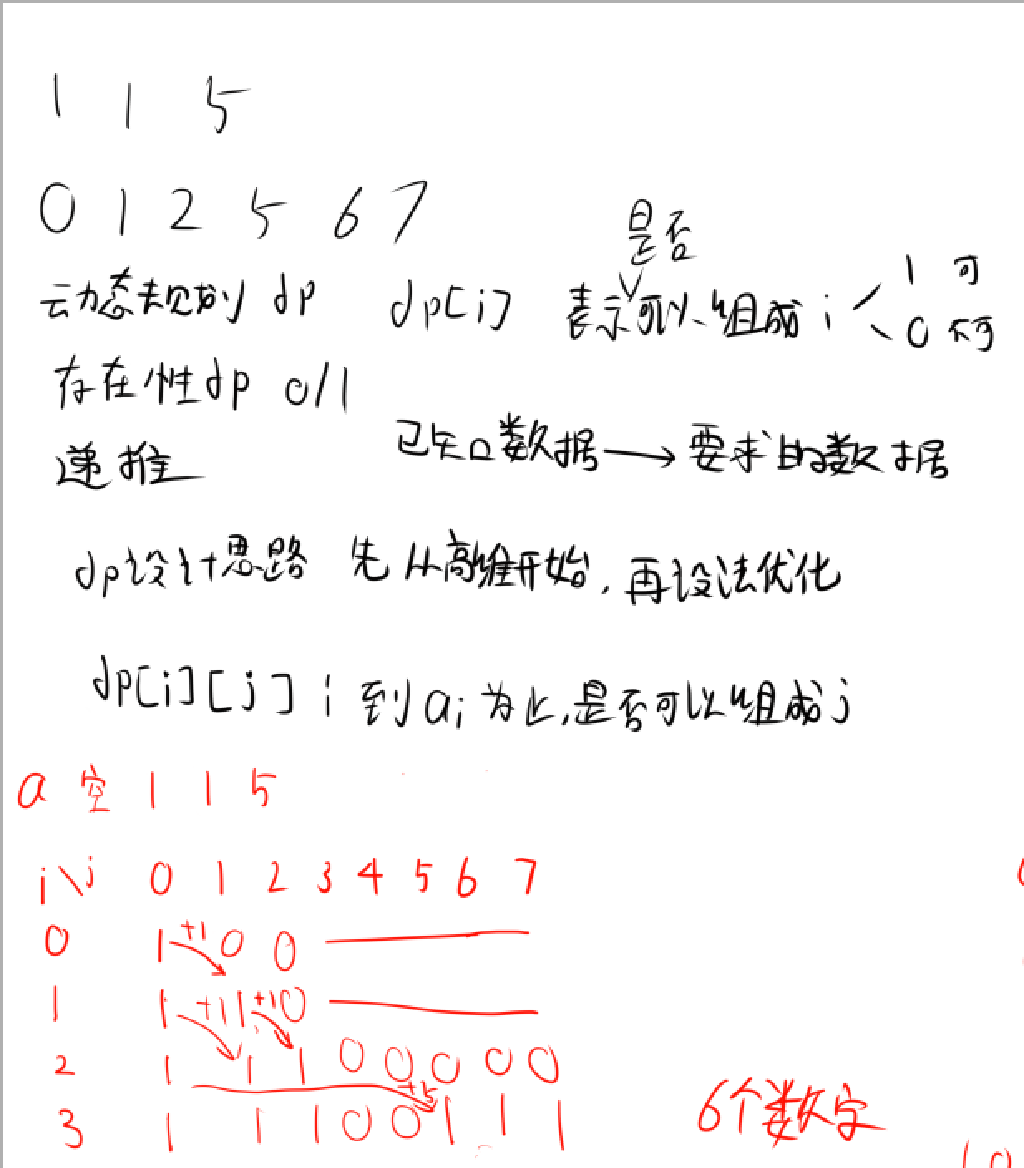 1 1 5
0 1 2 5 6 7
是否
动态规划 dp dp[i] 表示可以组成 i 1 可
0 不可
存在性dp 0/1
递推 已知数据→要求的数据
dp设计思路 先从高维开始,再设法优化
dp[i][j] i 到 ai 为止,是否可以组成j
a 空 1 1 5
i\j 0 1 2 3 4 5 6 7
0 1 +1 0 0
1 1 +1 1 +1 0
2 1 1 1 0 0 0 0 0
+5
3 1 1 1 0 0 1 1 1 6个数字